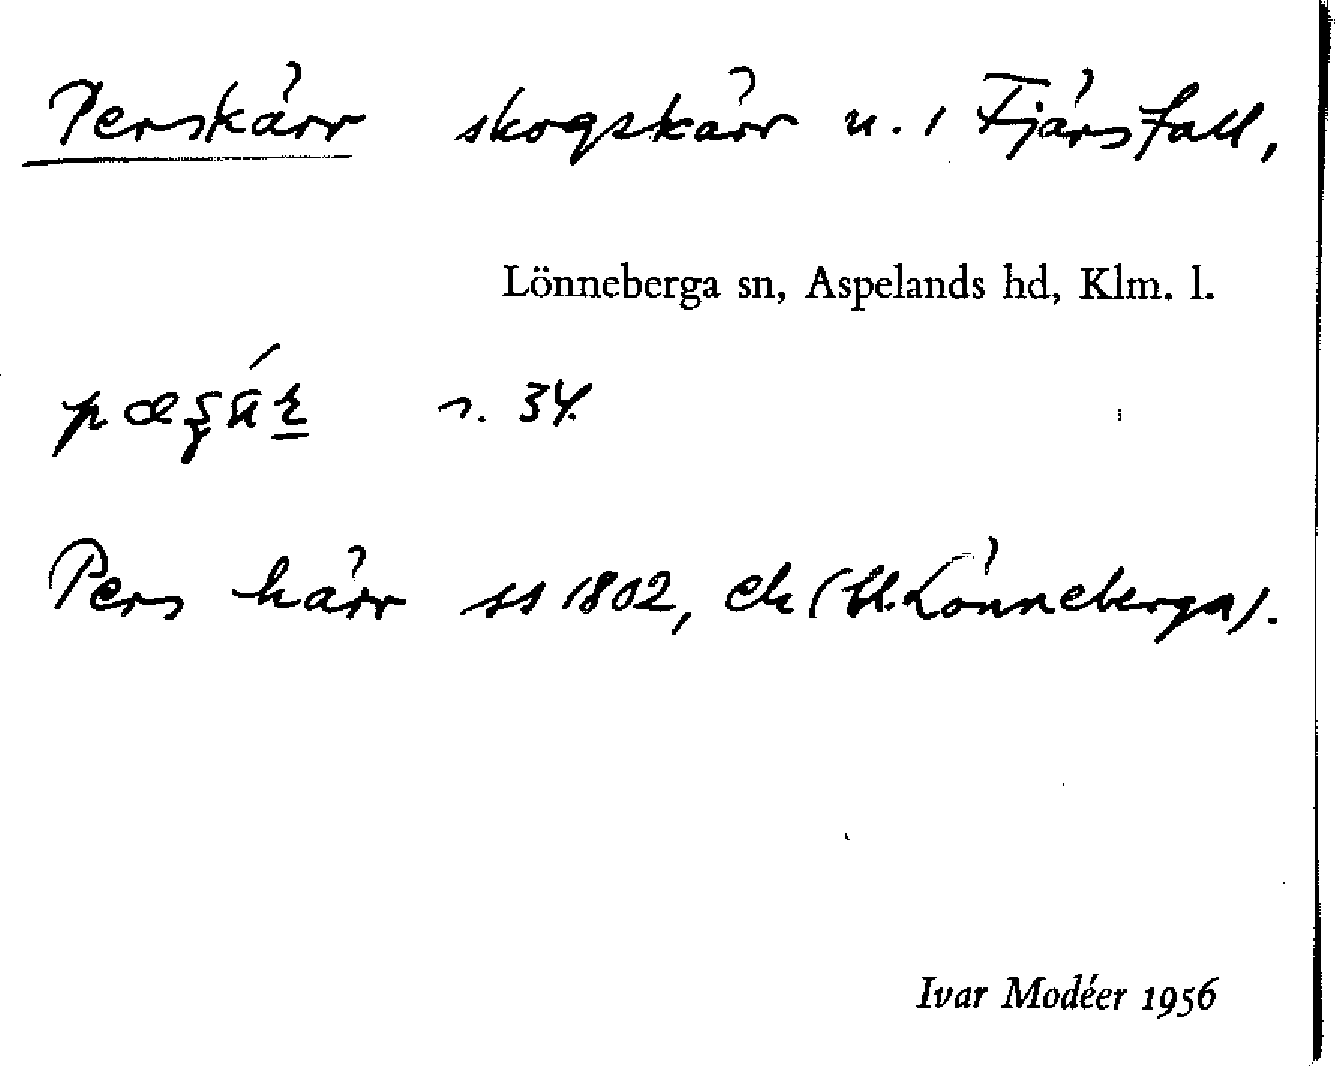 Perskärr skogskärr u. i Fjärsfall,
Lönneberga sn, Aspelands hd, Klm. l.
s. 34.
Pers kärr ss 1802, ek (bl. Lönneberga).
Ivar Modéer 1956